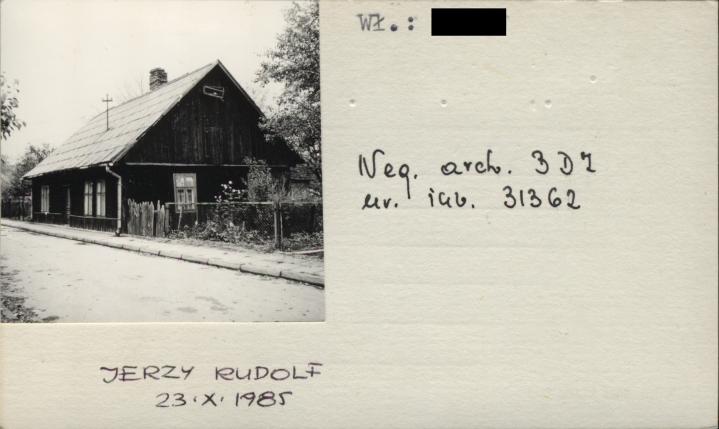 WŁ.:
Neg. arch. 3DZ
nr. inw. 31362
JERZY RUDOLF
23.X.1985